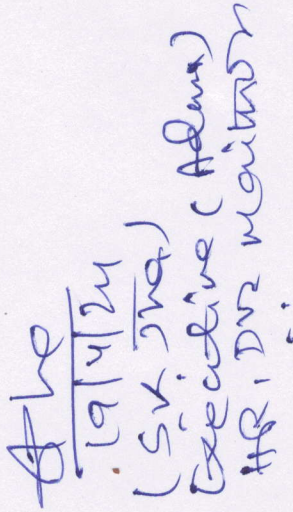 19/4/24
(SK Jha)
Executive (Admn)
HR, DVC Maithon